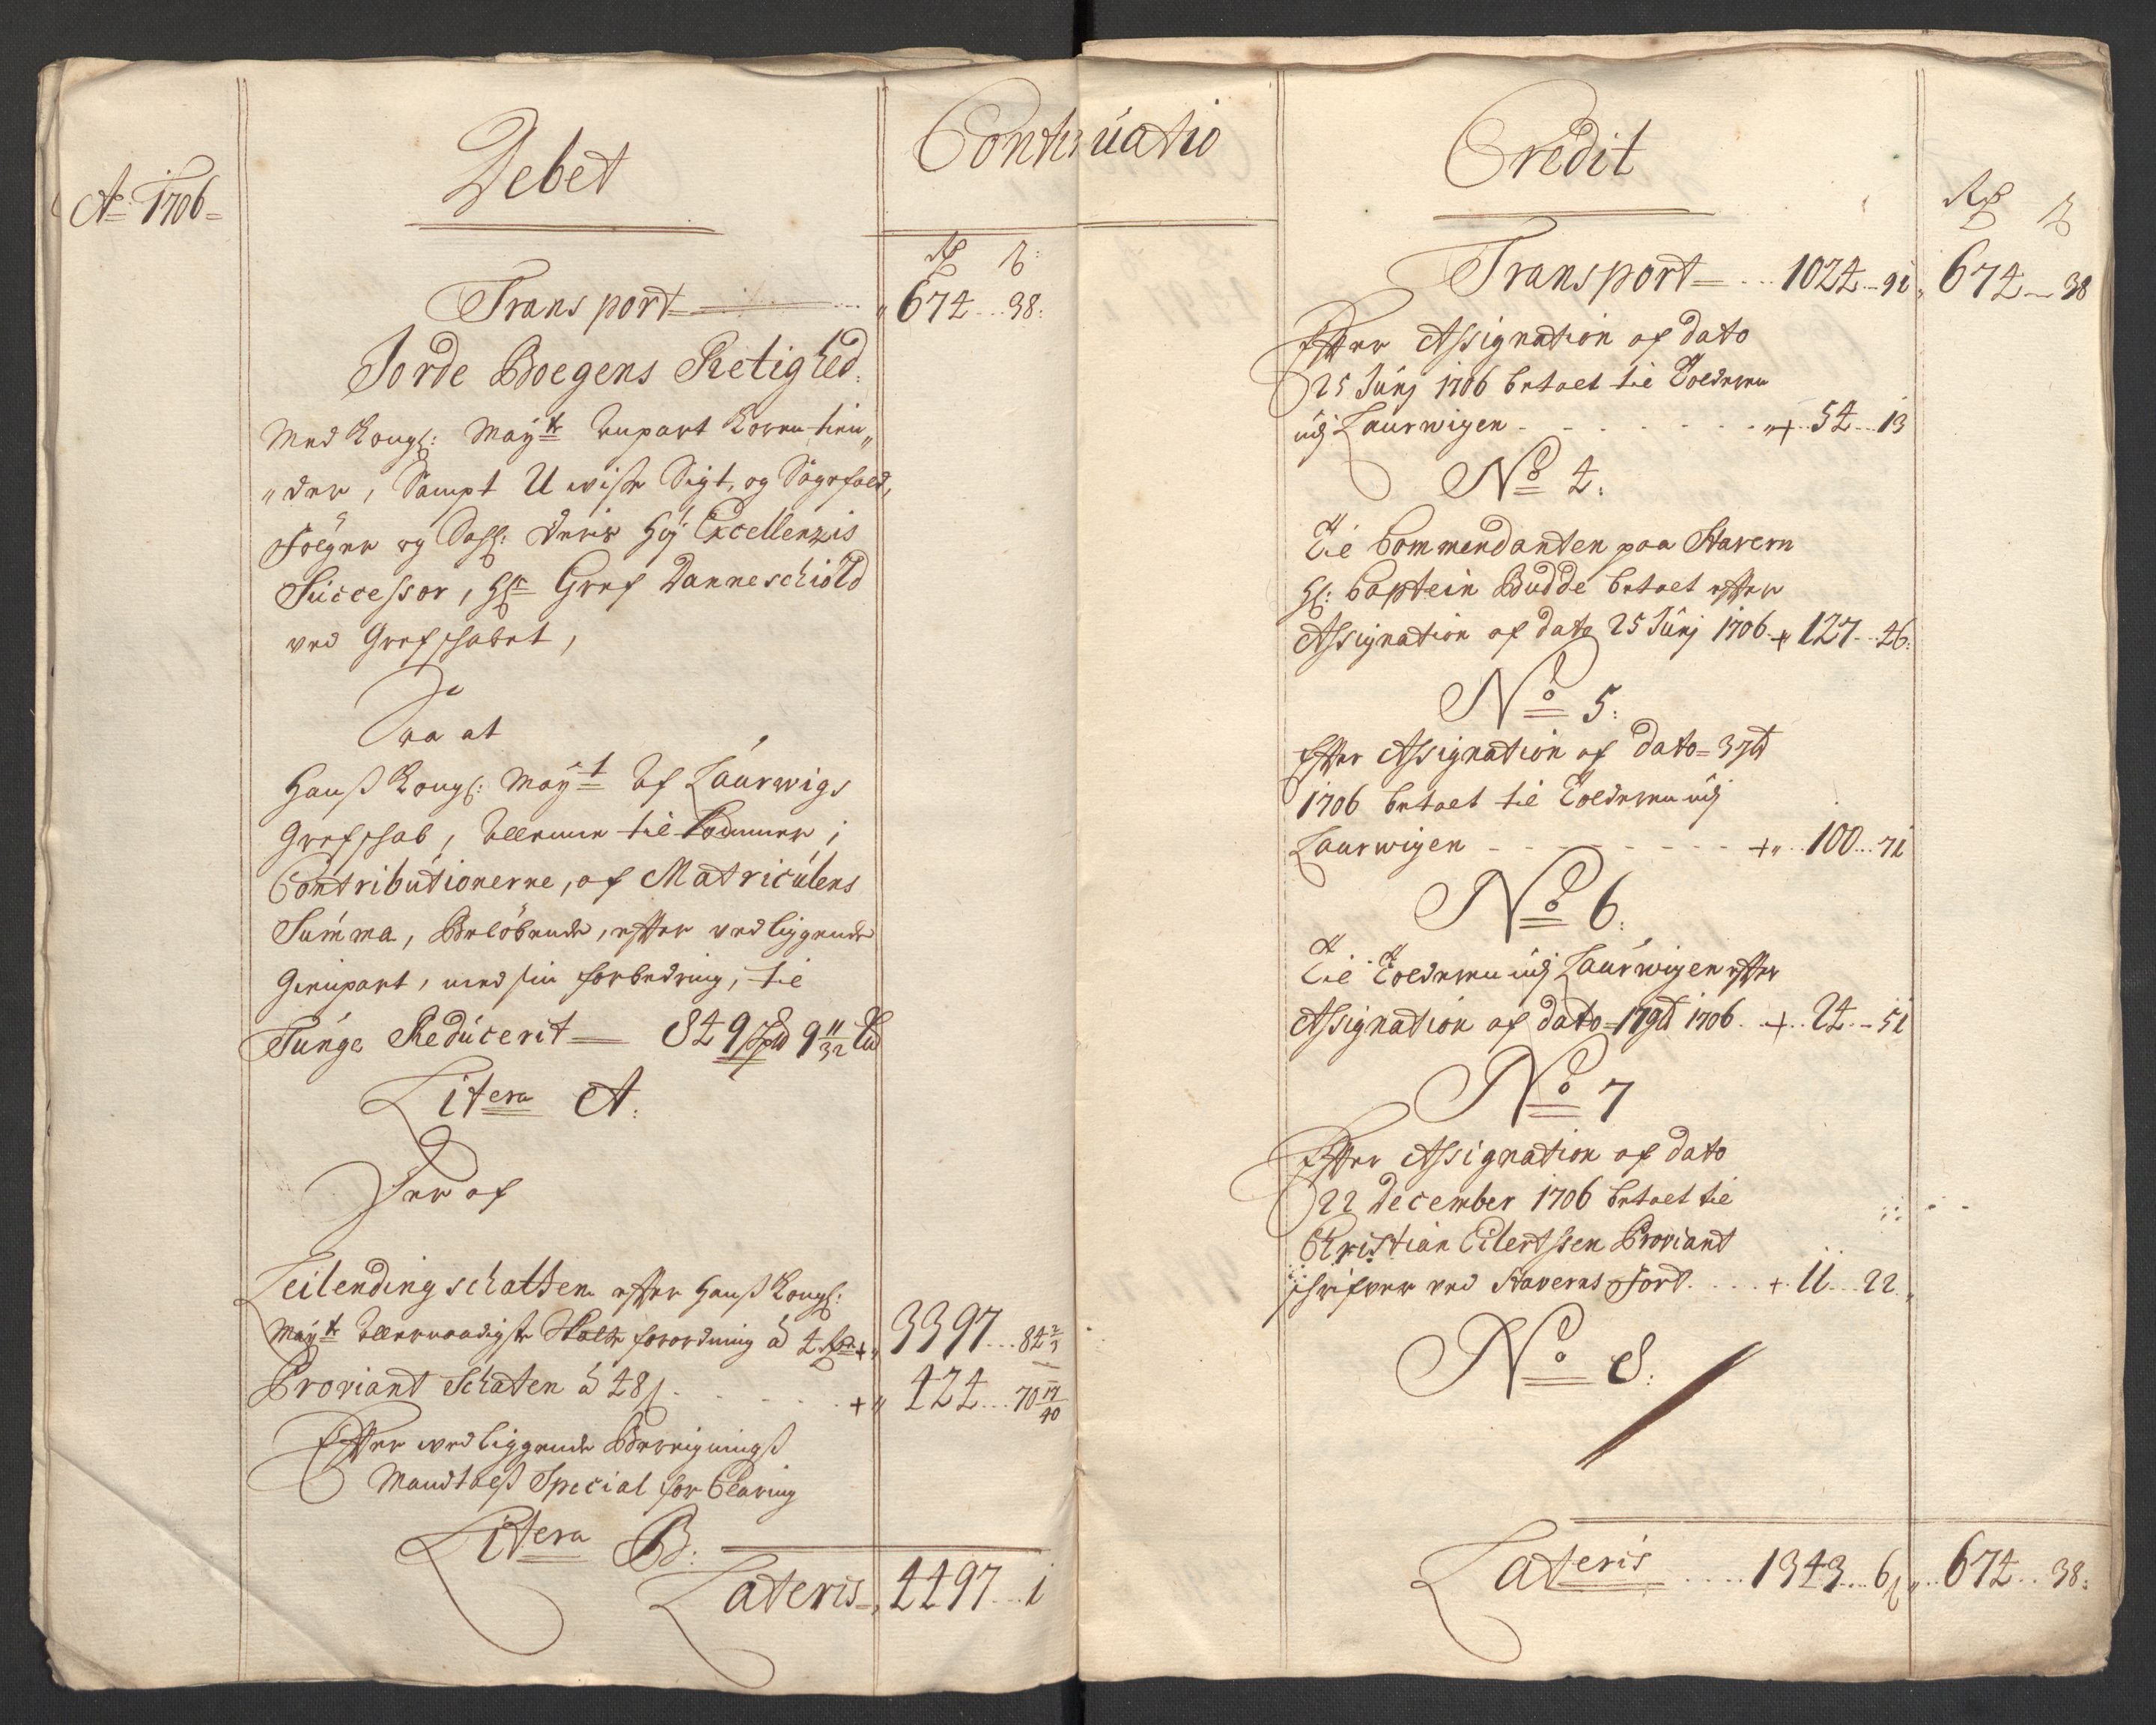 Ao 1706
Debet
Continuatio
Rd ß:
Transport 674 38:
Jorde Boegens Retighed
Med Kongl: Mayts Anpart Koren-tien„
„der, Sampt Uvisse Sigt, og Sagefald,
følger og Sahl: Deris Høy Excellenzis
Successor, Hr Gref Danneschiold
ved Grefschabet,
Saa at
Hans Kongl: Mayt Af Laurwigs
Grefschab, Allene tilkommer i
Contributionerne, af Matriculens
Summa, Beløbende, efter vedliggende
Gienpart, med sin forbedring, til
Tunge Reducerit 849 Spd 9 11/32 Lid
Litera A:
Her af
Leilending schatten efter Hans Kongl:
Mayts Allernaadigste Skatte forordning à 4 + 3397 84 2/3
Proviant Schaten à 48ß + 424 70 17/40
Efter vedliggende Beregnings
Mandtals Special for Claring
Litera B:
Lateris 4497 1
Credit
Rd ß
Transport 1024 91 674 38
Efter Assignation af dato
25 Junj 1706 betalt til Tolderen
udj Laurwigen + 54 13
No 4:
Til Commendanten paa Stavern
Hl: Captein Budde betalt efter
Assignation af dato 25 Junj 1706 + 127 46:
No 5:
Efter Assignation af dato 37bd
1706 betalt til Tolderen udj
Laurwigen + 100 71
No 6:
Til Tolderen udj Laurwigen efter
Assignation af dato 179bd 1706 + 24 51
No 7
Efter Assignation af dato
22 December 1706 betalt til
Christian Eilertssen Proviant
schrifver ved Staverns Fort + 11 22
No 8:
Lateris 1343 6ß 674 38: